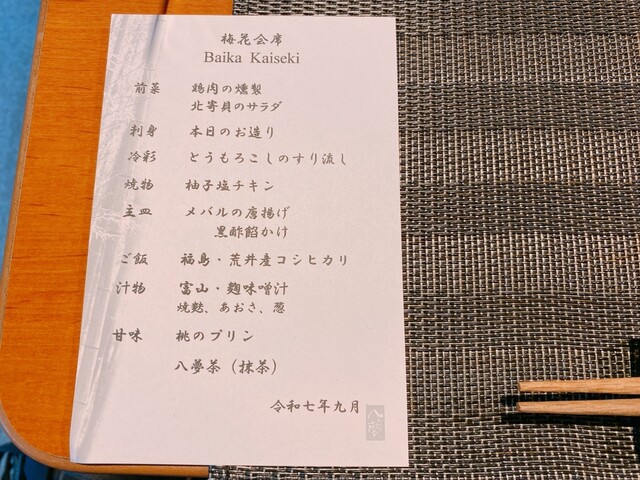 梅花会席
Baika Kaiseki
前菜 鶏肉の燻製
北寄貝のサラダ
刺身 本日のお造り
冷彩 とうもろこしのすり流し
焼物 柚子塩チキン
主皿 メバルの唐揚げ
黒酢餡かけ
ご飯 福島・荒井産コシヒカリ
汁物 富山・麹味噌汁
焼麩、あおさ、葱
甘味 桃のプリン
八夢茶（抹茶）
令和七年九月
八夢